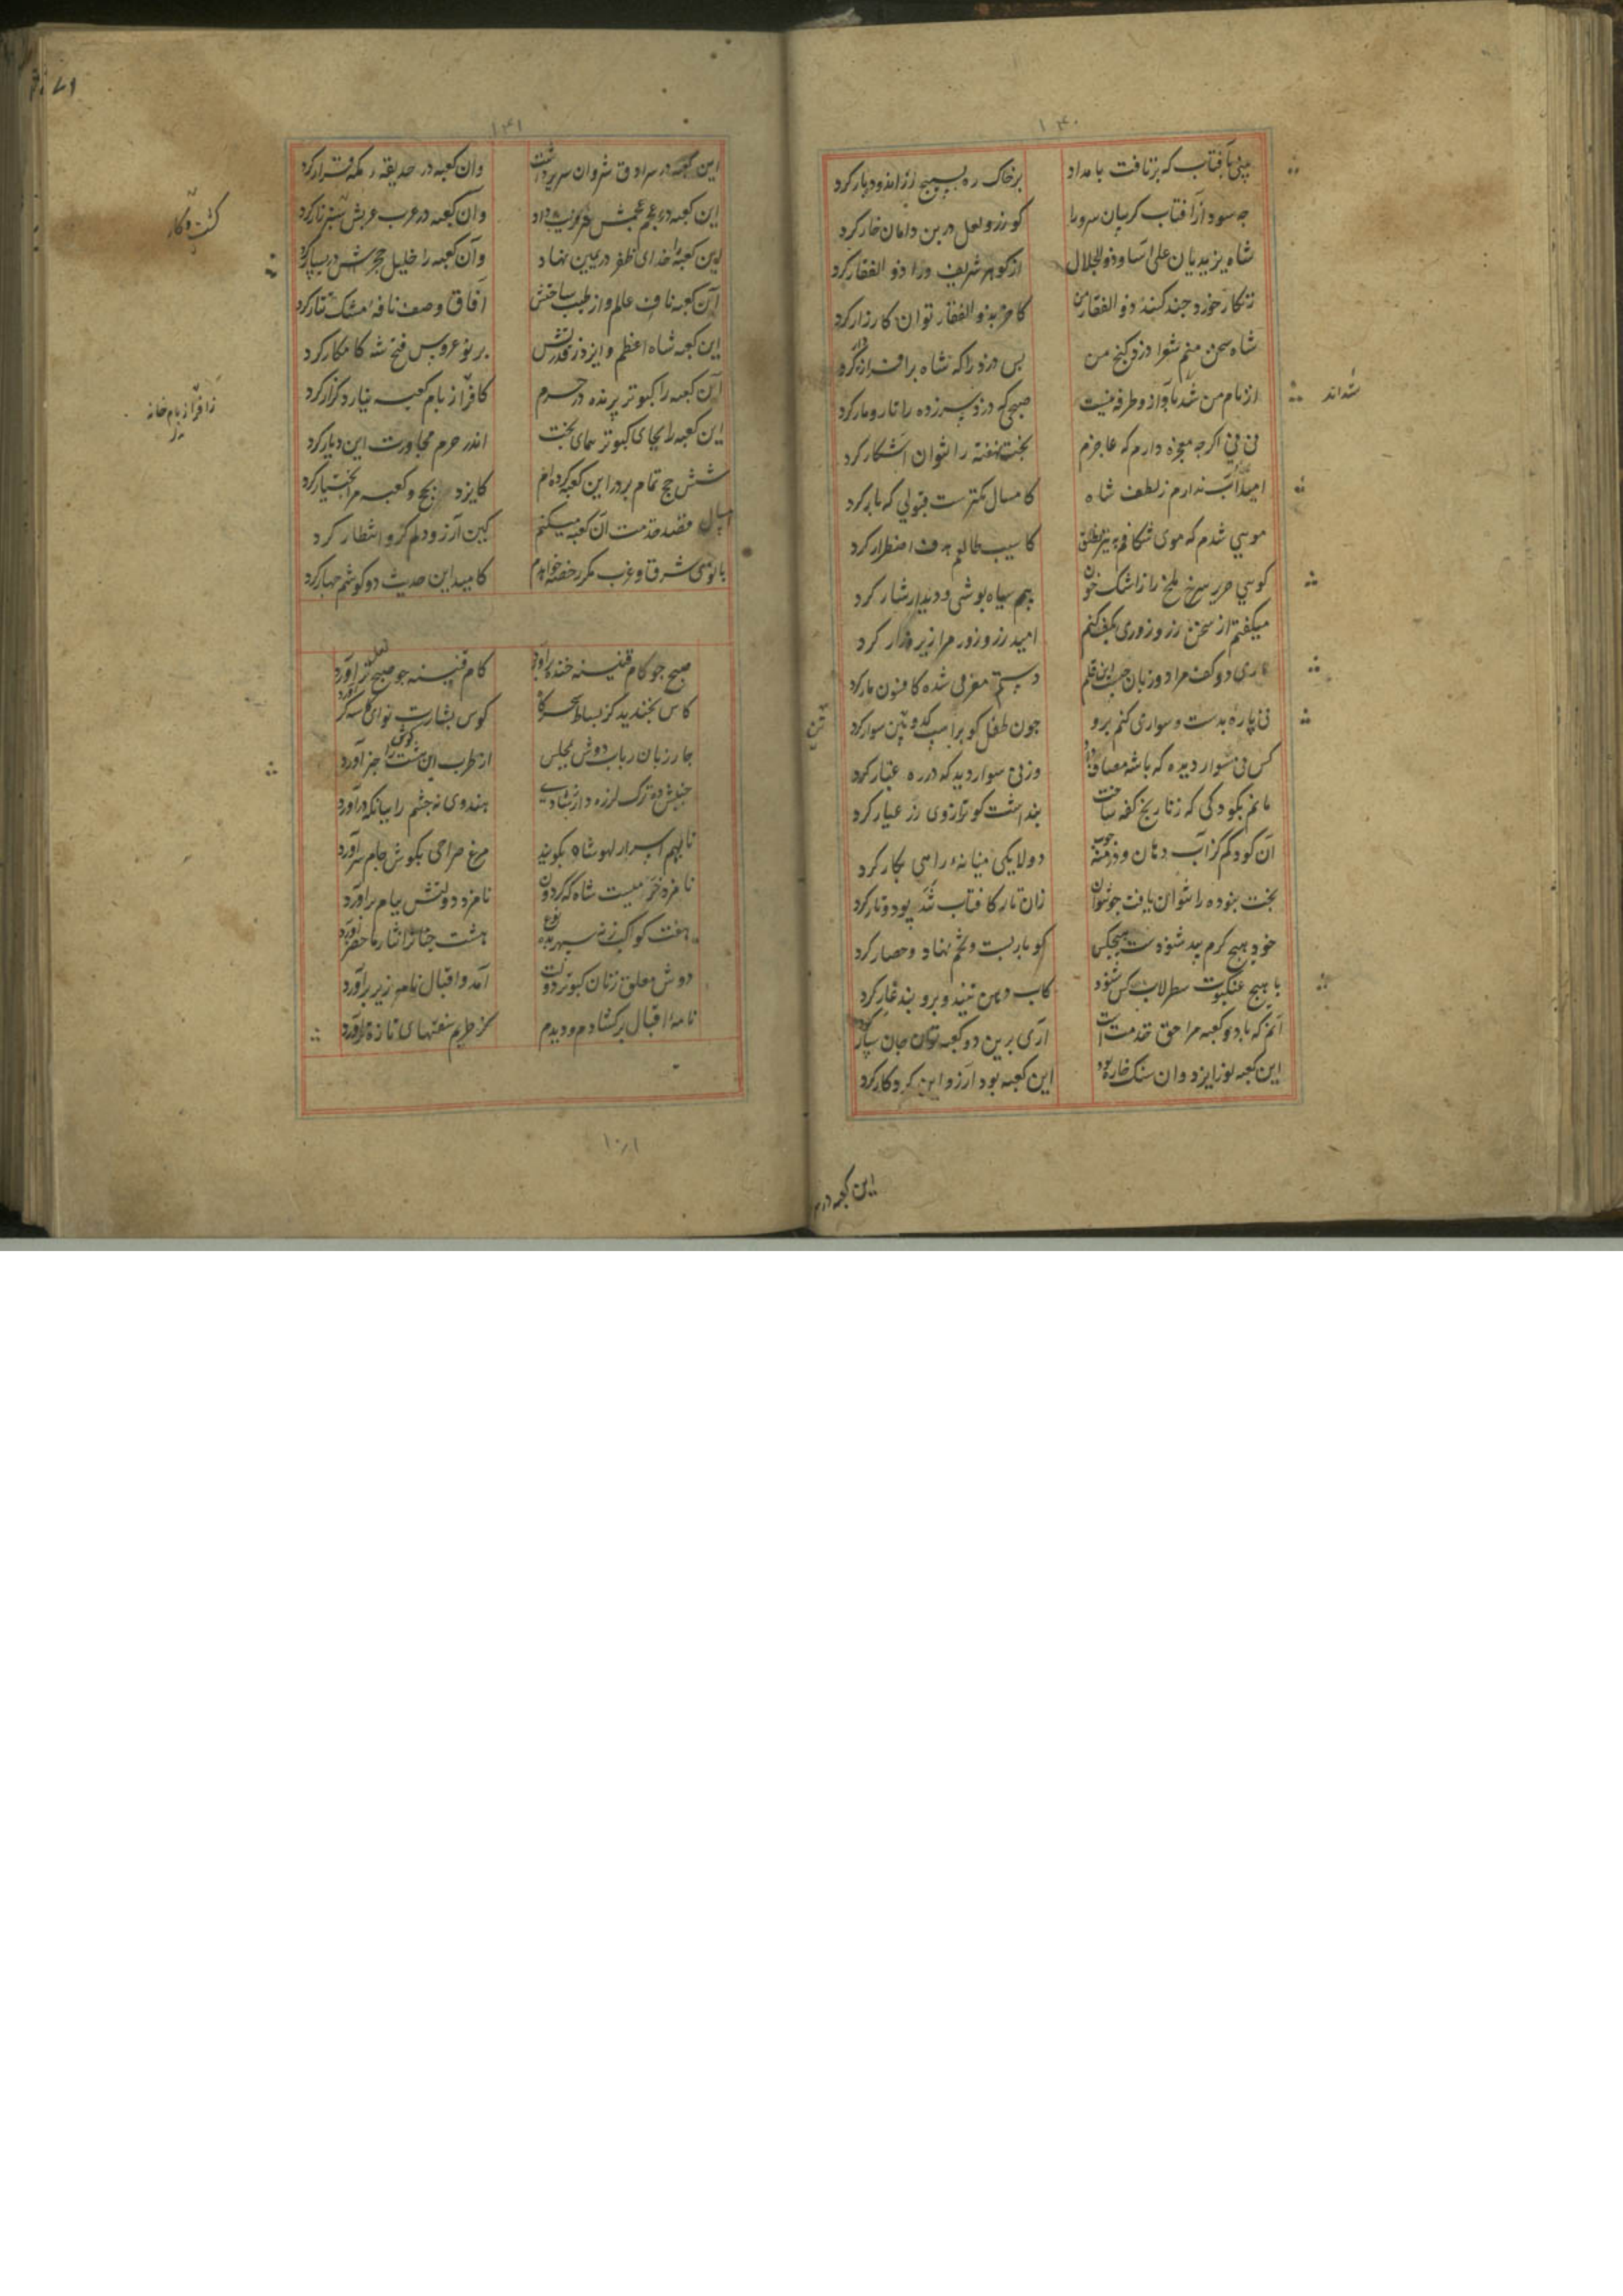 ۱۴۰
بینی بآفتاب که برتافت بامداد برخاک ره بسیج زر اندود بار کرد
جه سود ازآفتاب کریبان سرورا کو زر و لعل در بن دامان خار کرد
شاه یزیدیان علی آسا و ذوالجلال از کوهر شریف ورا ذو الفقار کرد
زنکار خورد جند کند ذو الفقار من کاخر بذو الفقار توان کارزار کرد
شاه سخن منم شعرا دزد کنج من بس دزد را که شاه برافراز دار کرد
از نام من شدند بآواز و طرفه نیست صبحی که دزد سرزده را تارومار کرد
شداند
نی نی اکرجه معجزه دارم که عاجزم بخت نهفته را نتوان آشکار کرد
امید آب ندارم ز لطف شاه کامسال کمترست قبولی که پار کرد
مویی شدم که موی شکافم به تیر نطق کاسیب طالعم هدف اضطرار کرد
کویی حریر سرخ ملخ را ز اشک خون بیم سیاه پوشی و دیدار سار کرد
میکفتم از سخن زر و زوری بکف کنم امید زر و زور مرا زیر و زار کرد
ماری دو کف مرا دو زبان جیست این قلم دستم معزمی شده کافسون مار کرد
نی پاره بدست و سواری کنم برو جون طفل کو بر اسب کدوئین سوار کرد
کس نی سوار دیده که باشه مصاف داد وز نی سوار دید که در ره غبار کرد
مانم بکودکی که ز نارنج کفه ساخت بنداشت کو ترازوی زر عیار کرد
آن کودکم کز آب دهان و ز درمنه چوب دولابکی میانه راهی بکار کرد
بخت نبوده را نتوان یافت جون توان زان تار کافتاب تند پود و تار کرد
خود هیج کرم پید شنودست هیجکس کو بار بست و تخم نهاد و حصار کرد
یا هیج عنکبوت سطرلاب کس شنود کاب دهن تنید و برو بند غار کرد
آنم که با دو کعبه مرا حق خدمت است آری برین دو کعبه توان جان سپار کرد
این کعبه نور ایزد وان سنک خاره بود این کعبه بود آرزو این کردکار کرد
این کعبه در
۱۴۱
این کعبه در سرادق شروان سریر داشت وان کعبه در حدیقه مکه قرار کرد
این کعبه در عجم عجمش خزیت داد وان کعبه در عرب عربش سبزنار کرد
این کعبه را خدای ظفر در یمین نهاد وآن کعبه را خلیل حجر در یسار کرد
آن کعبه ناف عالم و از طیب ساحتش آفاق وصف نافه مشک تتار کرد
این کعبه شاه اعظم و ایزد ز قدرتش بر نو عروس فتح شه کامکار کرد
آن کعبه را کبوتر پرنده در حرم کافر از بام کعبه نیارد کزار کرد
زافراز بام خانه
این کعبه را بجای کبوتر همای بخت اندر حرم مجاورت این دیار کرد
شش حج تمام بر در این کعبه کرده ام کایزد بحج و کعبه مرا بختیار کرد
امسال قصد خدمت آن کعبه میکنم کین آرزو دلم کرو انتظار کرد
با توی شرق و غرب مکر رخصه خواهدم کامید این حدیث دو کوشم جهار کرد
صبح جو کام قنینه خنده برآورد کام قنینه جو صبح لعل تر آورد
کاس بخندید کز نشاط سحرگاه کوس بشارت نوای کاسه کر آورد
جار زبان رباب دوش بمجلس از طرب این هشت کوش را خبر آورد
جنبش ده ترک لرزه دار ز شادی هندوی نه جشم را ببانک درآورد
تا بهم اسرار لهو شاه بکویند مرغ صراحی بکوش جام سر آورد
نامزد خرمیست شاه که کردون نامزد دولتش بیام برآورد
هفت کواکب ز نه سپهر بده نوع هشت جنان را نثار ماحضر آورد
دوش معلق زنان کبوتر دولت آمد و اقبال نامه زیر پر آورد
نامه اقبال برکشادم و دیدم کز ظفرم سفتهای تازه تر آورد
۱۰۸۱